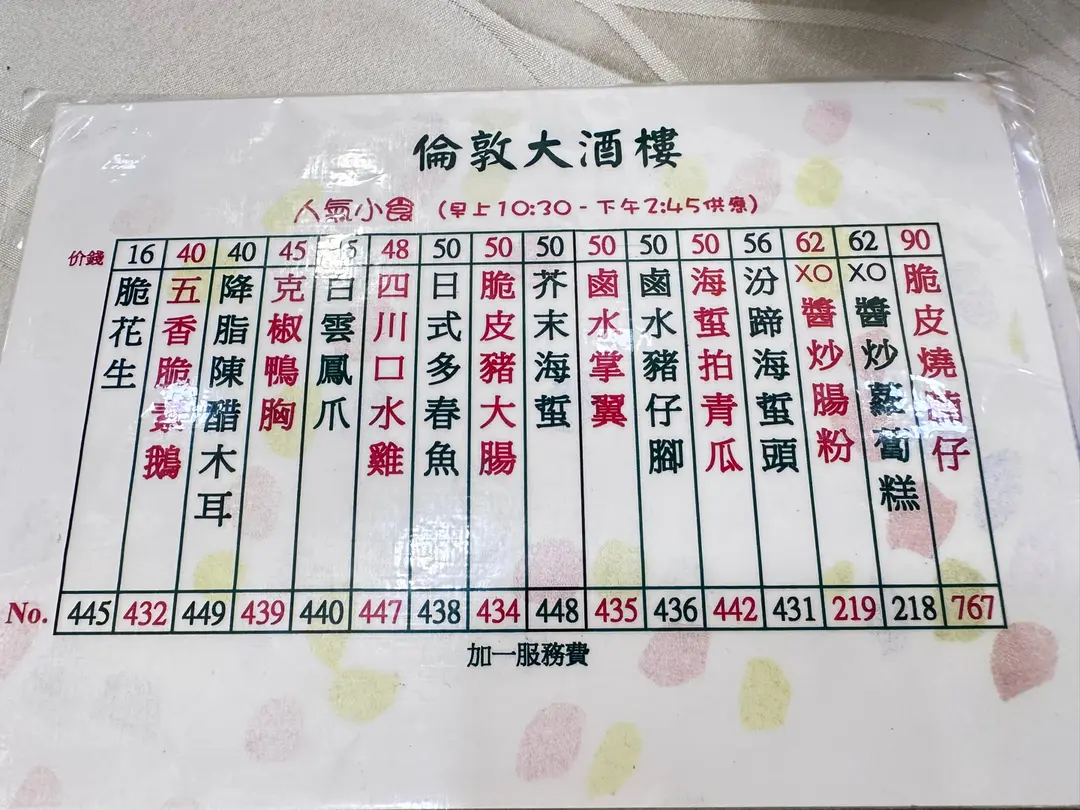 倫敦大酒樓
人氣小食 (早上10:30 - 下午2:45供應)
价錢 16 40 40 45 48 50 50 50 50 50 50 56 62 62 90
脆花生
五香脆素鵝
降脂陳醋木耳
克椒鴨胸
白雲鳳爪
四川口水雞
日式多春魚
脆皮豬大腸
芥末海蜇
鹵水掌翼
鹵水豬仔腳
海蜇拍青瓜
汾蹄海蜇頭
XO醬炒腸粉
XO醬炒蘿蔔糕
脆皮燒腩仔
No. 445 432 449 439 440 447 438 434 448 435 436 442 431 219 218 767
加一服務費